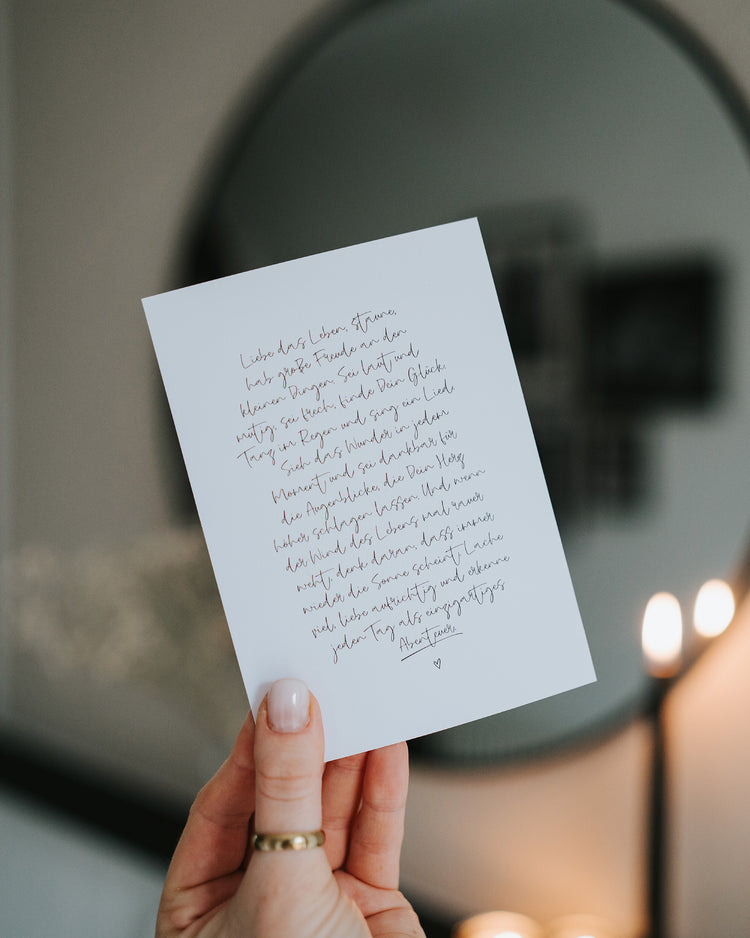 Liebe das Leben, staune,
hab große Freude an den
kleinen Dingen. Sei laut und
mutig, sei frech, finde Dein Glück,
Tanz im Regen und sing ein Lied.
Sieh das Wunder in jedem
Moment und sei dankbar für
die Augenblicke, die Dein Herz
höher schlagen lassen. Und wenn
der Wind des Lebens mal rauer
weht, denk daran, dass immer
wieder die Sonne scheint. Lache
viel, liebe aufrichtig und erkenne
jeden Tag als einzigartiges
Abenteuer.